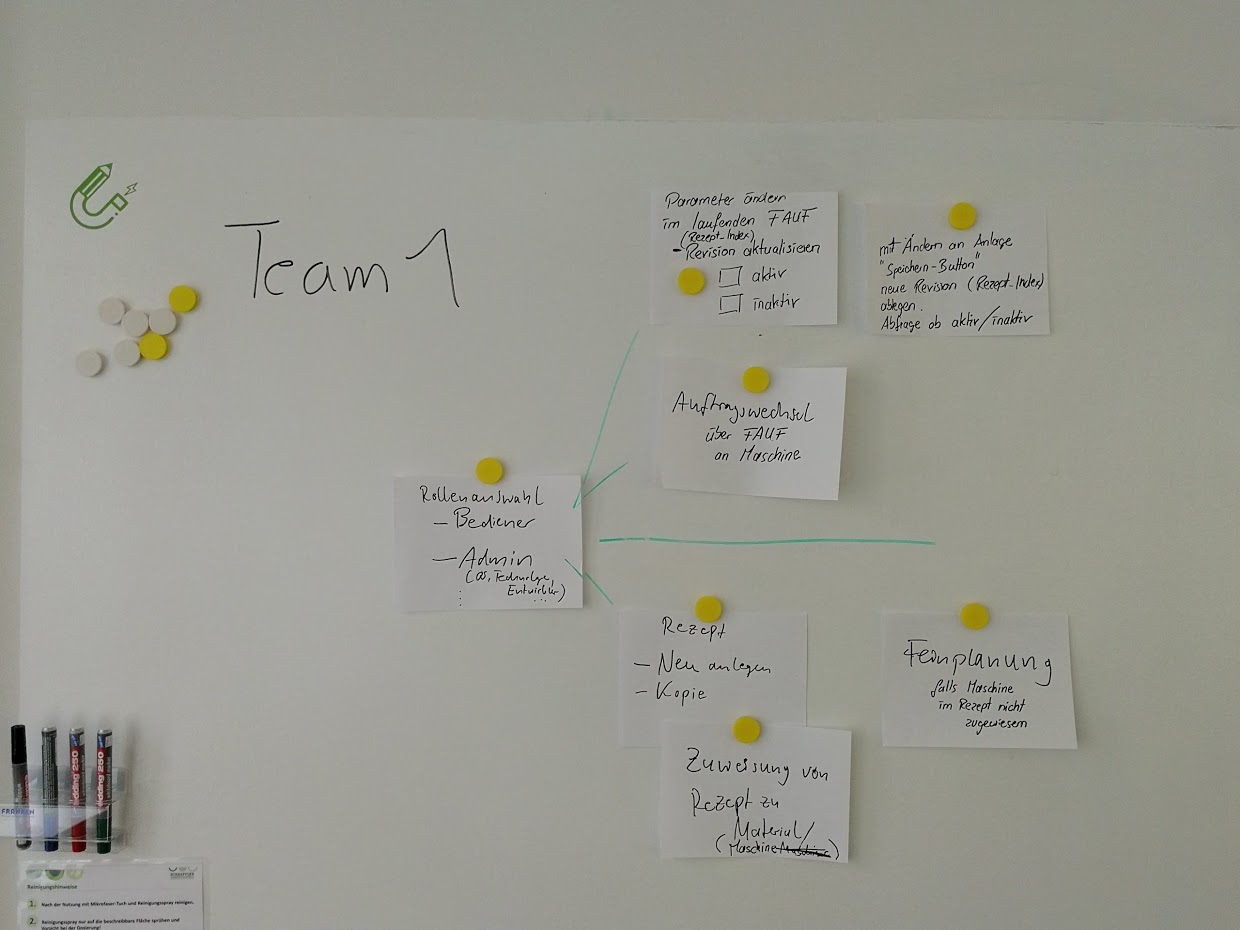 Team 1
Parameter ändern
im laufenden FAUF
(Rezept-Index)
- Revision aktualisieren
aktiv
inaktiv
mit Ändern an Anlage
"Speichern-Button"
neue Revision (Rezept-Index)
ablegen.
Abfrage ob aktiv/inaktiv
Auftragswechsel
über FAUF
an Maschine
Rollenauswahl
- Bediener
- Admin
(QS, Technologe,
Entwickler)
Rezept
- Neu anlegen
- Kopie
Zuweisung von
Rezept zu
Material/
(Maschine)
Feinplanung
falls Maschine
im Rezept nicht
zugewiesen
edding 250
edding 250
FRANKEN
Reinigungshinweise
1. Nach der Nutzung mit Mikrofaser-Tuch und Reinigungsspray reinigen.
2. Reinigungsspray nur auf die beschreibbare Fläche sprühen und
Vorsicht bei der Dosierung!